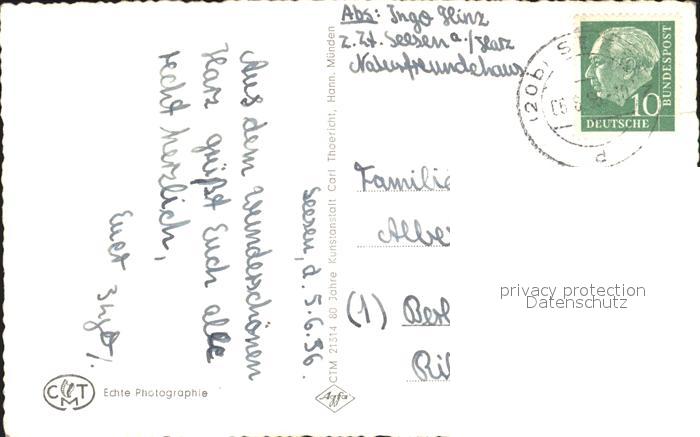 Abs: Ingo Hinz
z. Zt. Seesen a./Harz
Naturfreundehaus
10
DEUTSCHE
BUNDESPOST
(20b) SE
Seesen, d. 5.6.56.
Aus dem wunderschönen
Harz grüßt Euch alle
recht herzlich,
Euer Ingo.
CTM 21514 80 Jahre Kunstanstalt Carl Thoericht, Hann. Münden
Familie
Albe
(1) Berl
privacy protection
Datenschutz
CTM
Echte Photographie
Agfa